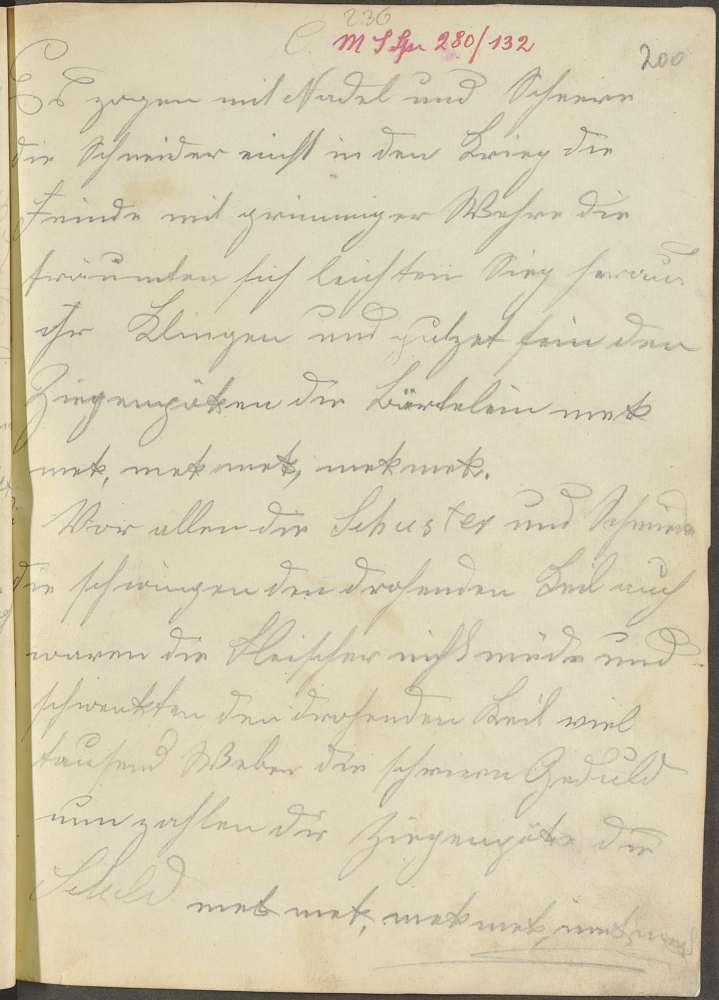 236
C. M S Sp 280/132
200
Es zogen mit Nadel und Scheere
die Schneider einst in den Krieg die
Feinde mit grimmiger Wehre die
träumten sich leichten Sieg heraus
ihr Klingen und putzet fein den
Ziegenpöken die Bärtelein mek
mek, mek mek, mek mek.
Vor allen die Schuster und Schmiede
die schwingen den drohenden Keil auch
waren die Fleischer nicht müde und
schwenkten den drohenden Keil viel
tausend Weber die schrieen Geduld
nun zahlen die Ziegenpöke die
Schuld mek mek, mek mek, mek mek